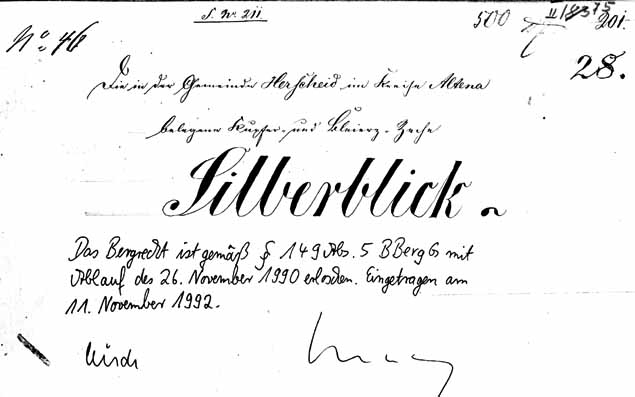 S. Nr 211
500
201.
No: 46
28.
Die in der Gemeinde Herscheid im Kreise Altena
belegene Kupfer- und Bleierz-Zeche
Silberblick
Das Bergrecht ist gemäß § 149 Abs. 5 BBergG mit
Ablauf des 26. November 1990 erloschen. Eingetragen am
11. November 1992.